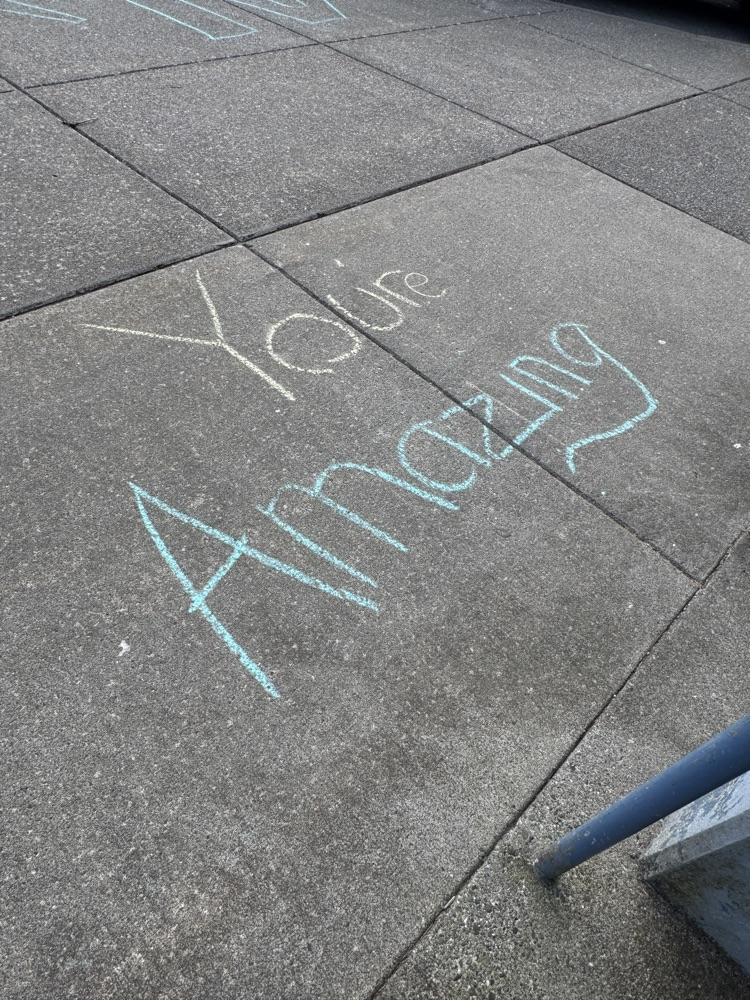 You're
Amazing